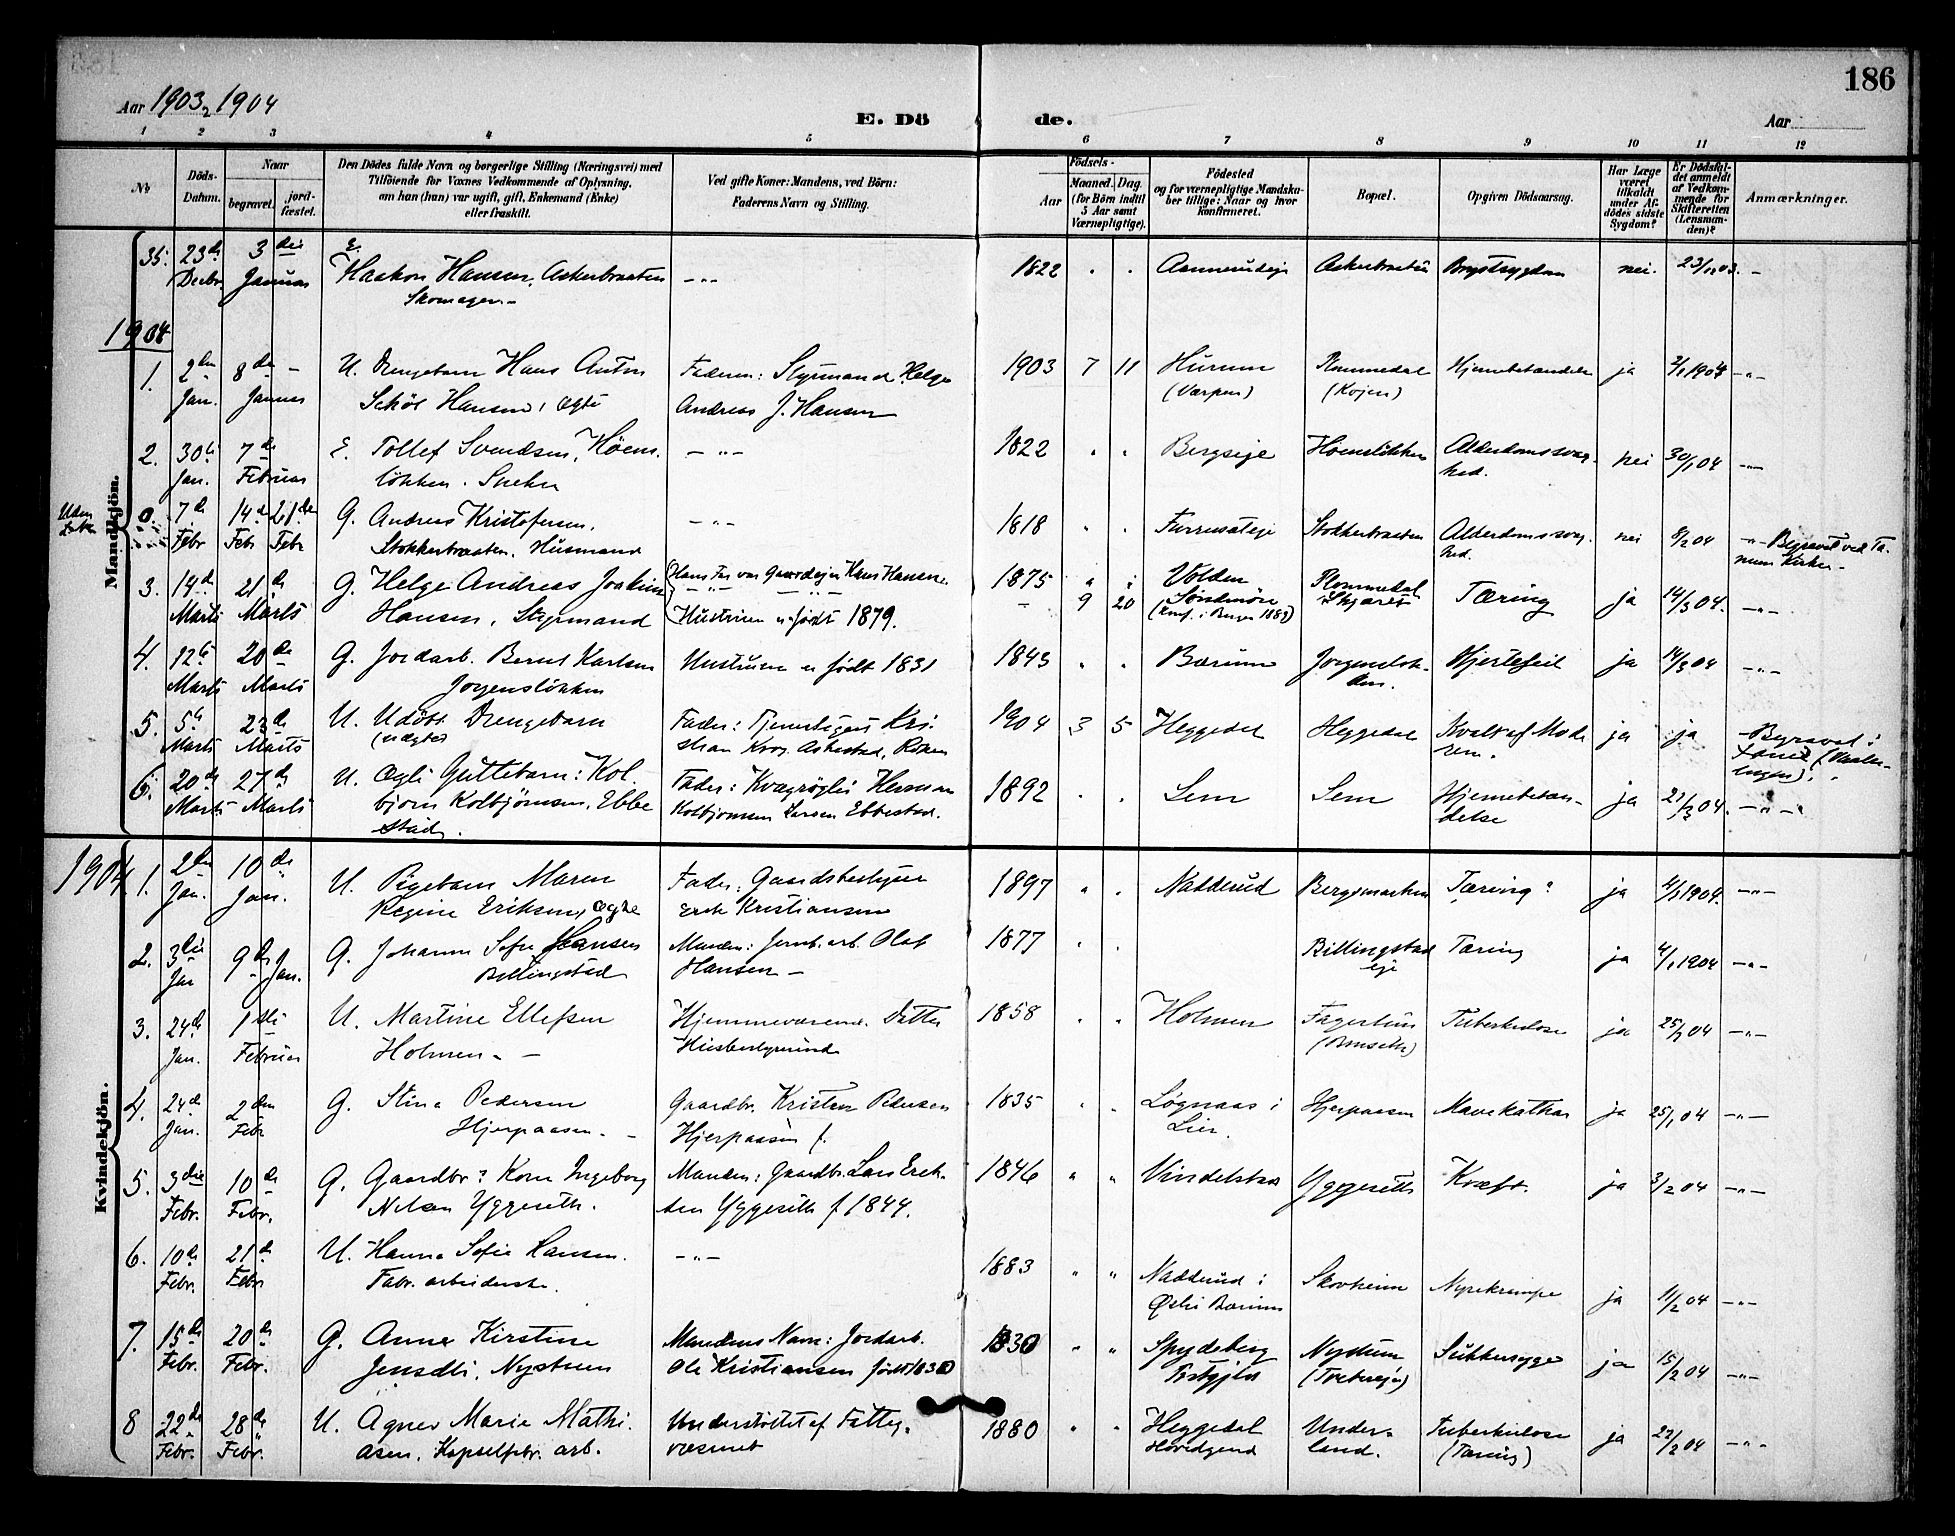 186
Aar 1903, 1904
E. Dö de.
Aar
1 2 3 4 5 6 7 8 9 10 11 12
No
Döds-Datum.
Naar
begravet.
jord-fæstet.
Den Dödes fulde Navn og borgerlige Stilling (Næringsvei) med
Tilföiende for Voxnes Vedkommende af Oplysning.
om han (hun) var ugift, gift, Enkemand (Enke)
eller fraskilt.
Ved gifte Koner: Mandens, ved Börn:
Faderens Navn og Stilling.
Födsels-
Aar
Maaned. Dag.
(for Börn indtil
5 Aar samt
Værnepligtige).
Födested
og for værnepligtige Mandska-
ber tillige: Naar og hvor
konfirmeret.
Bopæl.
Opgiven Dödsaarsag.
Har Læge
været
tilkaldt
under Af-
dödes sidste
Sygdom?
Er Dödsfal-
det anmeldt
af Vedkom-
mende for
Skifteretten
(Lensman-
den)?
Anmærkninger.
Mandkjön.
35. 23de 3die E. Haakon Hansen, Askerbraaten -„- 1822 „ „ Askerbraaten Brystsygdom nei. -
Decbr. Januar Skomager.-
1904
1. 2den 8de - U. Drengebarn Hans Anton Faderen: Styrmand Helge 1903 7 11 Hurum Hjernebetændelse ja 2/1 1904 -„-
Jan. Januar Hansen, Ægte Andreas J. Hansen
2. 30te 7de E. Tollef Svendsen, Höens- -„- 1822 „ „ Bergseje Höenslökken Alderdomssvag- nei 30/1 04 -„-
Jan. Februar lökken. Snekker hed.
0. 7de 14de 21de G. Andreas Kristofersen, -„- 1818 „ „ Stokkerbraaten Alderdomssvag- nei 8/2 04 -„- Begravet ved Ta-
Febr Febr Febr Stokkerbraaten, Husmand hed. num Kirke.-
3. 14de 21de G. Helge Andreas Joakim Hans Far var Gaardejer Hans Hansen 1875 9 20 Volden Tæring ja 14/3 04. -„-
Marts Marts Hansen, Styrmand Hustruen er født 1879.
4. 12te 20de G. Jordarb. Bernt Karlsen Hustruen er født 1831 1843 „ „ Bærum Jorgenslök- Hjertefeil ja 14/3 04 -„-
Marts Marts Jorgenslökken ken.
5. 5te 23de U. Udöbt Drengebarn 1904 3 5 Heggedal Heggedal Kvalt af Mode- ja ja
Marts Marts (uægte) ren.
6. 20de 27de U. Ægte Guttebarn: Kol- 1892 „ „ Sem Sem Hjernebetæn- ja 21/3 04. -„-
Marts Marts bjorn Kolbjörnsen, Ebbe- Kolbjornsen Larsen Ebbestad. delse
stad.
Kvindekjön.
1904 1. 2den 10de U. Pigebarn Maren Fader: Gaardsbestyrer 1897 „ „ Nadderud Bergsmarken Tæring? ja 4/1 1904. -„-
Jan. Jan. Regine Eriksen, Ægte Erik Kristiansen
2. 3die 9de Jan. G. Johanne Sofie Hansen Manden: Jernb. arb. Olaf 1877 „ „ Billingstad Tæring ja 4/1 1904 -„-
Jan Billingstad Hansen - eje
3. 24de 1ste U. Martine Ellefsen Hjemmeværende Datter 1858 „ „ Holmen Tuberkulose ja 25/1 04 -„-
Jan. Februar Holmen. -
4. 24de 2den G. Stina Pedersen Gaardbr. Kristen Pedersen 1835 „ „ Løgnaas i Hjerpaasen Mavekathar ja 25/1 04 -„-
Jan. Febr Hjerpaasen. - Hjerpaasen f. Lier.
5. 3die 10de G. Gaardbr: Kone Ingeborg Manden: Gaardbr. Lars Erik- 1846 „ „ Yggeseth Kræft. ja 3/2 04 -„-
Febr. Febr. Nilsen Yggeseth. sen Yggeseth f. 1844.
6. 10de 21de U. Hanna Sofie Hansen. -„- 1883 „ „ Nadderud i Skovheim Nyrekrampe ja 11/2 04 -„-
Febr. Febr Fabr. arbeiderske. Østre Bærum
7. 15de 20de G. Anne Kirstine Mandens Navn: Jordarb. 1830 „ „ Spydeberg Nystuen Sukkersyge ja 15/2 04 -„-
Febr. Febr. Jensdtr, Nystuen Ole Kristiansen født 1830 Prstgjld
8 22de 28de U. Agnes Marie Mathi- Understöttet af Fattig- 1880 „ „ Heggedal Under- Tuberkulose ja 22/2 04 -„-
Febr. Febr. asen, Kapselfabr. arb. væsenet Hovedgaard land. (Tæring)